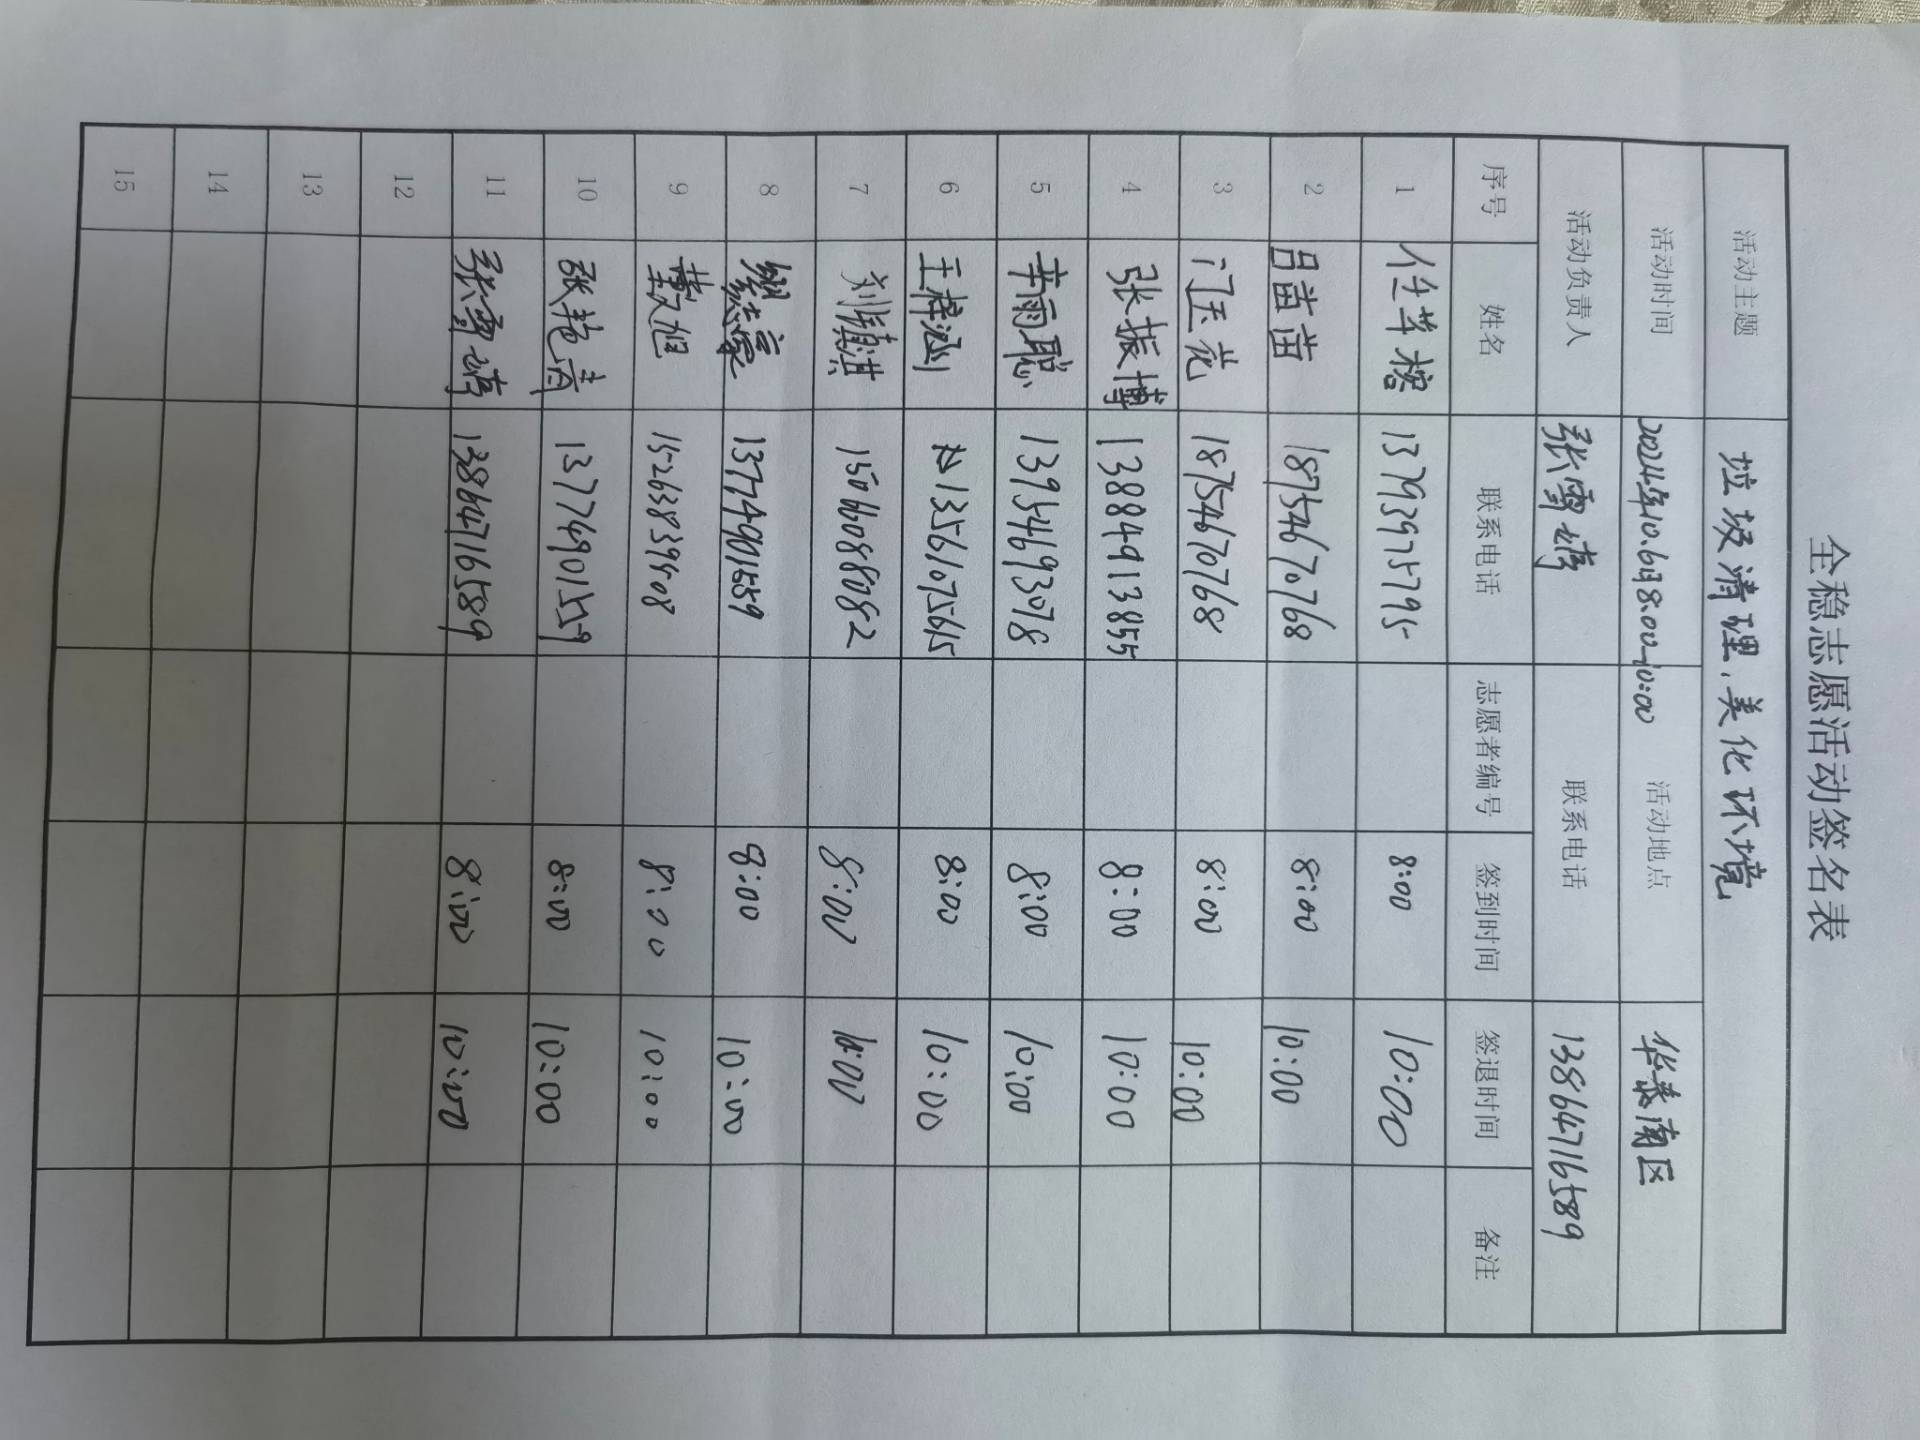 全稳志愿活动签名表
活动主题 垃圾清理、美化环境
活动时间 2024年10.6日8:00-10:00 活动地点 华泰南区
活动负责人 张雪靖 联系电话 13864716589
序号 姓名 联系电话 志愿者编号 签到时间 签退时间 备注
1 任苹榕 13793975795 8:00 10:00
2 吕苗苗 18754670768 8:00 10:00
3 门玉花 18754670768 8:00 10:00
4 张振博 13884913855 8:00 10:00
5 辛雨聪 13954693078 8:00 10:00
6 王梓涵 13561075615 8:00 10:00
7 刘镇淇 15066088082 8:00 10:00
8 8:00 10:00
9 旭 15263839508 8:00 10:00
10 张艳 13774901559 8:00 10:00
11 张雪靖 13864716589 8:00 10:00
12
13
14
15